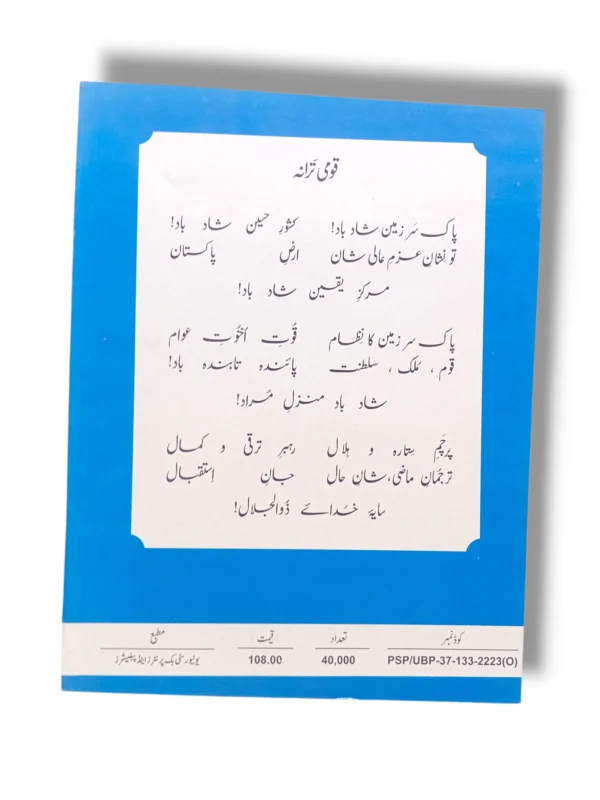 قومی تَرانہ
پاک سَر زمین شاد باد! کشورِ حسین شاد باد!
تو نِشانِ عزمِ عالی شان ارضِ پاکستان
مرکزِ یقین شاد باد!
پاک سر زمین کا نِظام قُوتِ اُخُوّتِ عوام
قوم ، مُلک ، سلطنت پائندہ تابندہ باد!
شاد باد منزلِ مُراد!
پرچمِ سِتارہ و ہلال رہبرِ ترقی و کمال
ترجُمانِ ماضی، شانِ حال جانِ اِستقبال
سایۂ خُدائے ذُوالجلال!
کوڈ نمبر تعداد قیمت مطبع
PSP/UBP-37-133-2223(O) 40,000 108.00 یونیورسٹی بک پرنٹرز اینڈ پبلیشرز